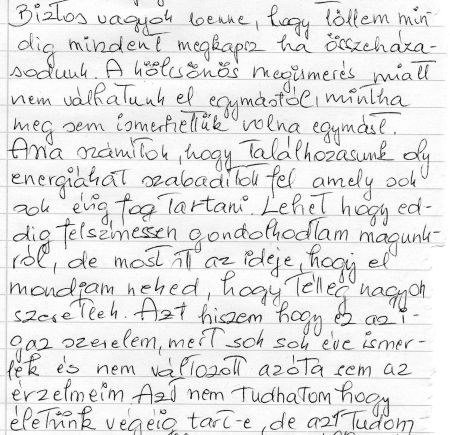 Biztos vagyok benne, hogy tőllem min-
dig mindent megkapsz ha összeháza-
sodunk. A kölcsönös megismerés miatt
nem válhatunk el egymástól, mintha
meg sem ismerhettük volna egymást.
Arra számítok, hogy találkozásunk oly
energiákat szabadított fel amely sok
sok évig fog tartani. Lehet hogy ed-
dig felszinessen gondolkodtam magunk-
ról, de most itt az ideje, hogy el
mondjam neked, hogy télleg nagyon
szeretlek. Azt hiszem hogy ez az i-
gaz szerelem, mert sok sok éve ismer-
lek és nem változott azóta sem az
érzelmeim Azt nem tudhatom hogy
életünk végéig tart-e, de azt tudom